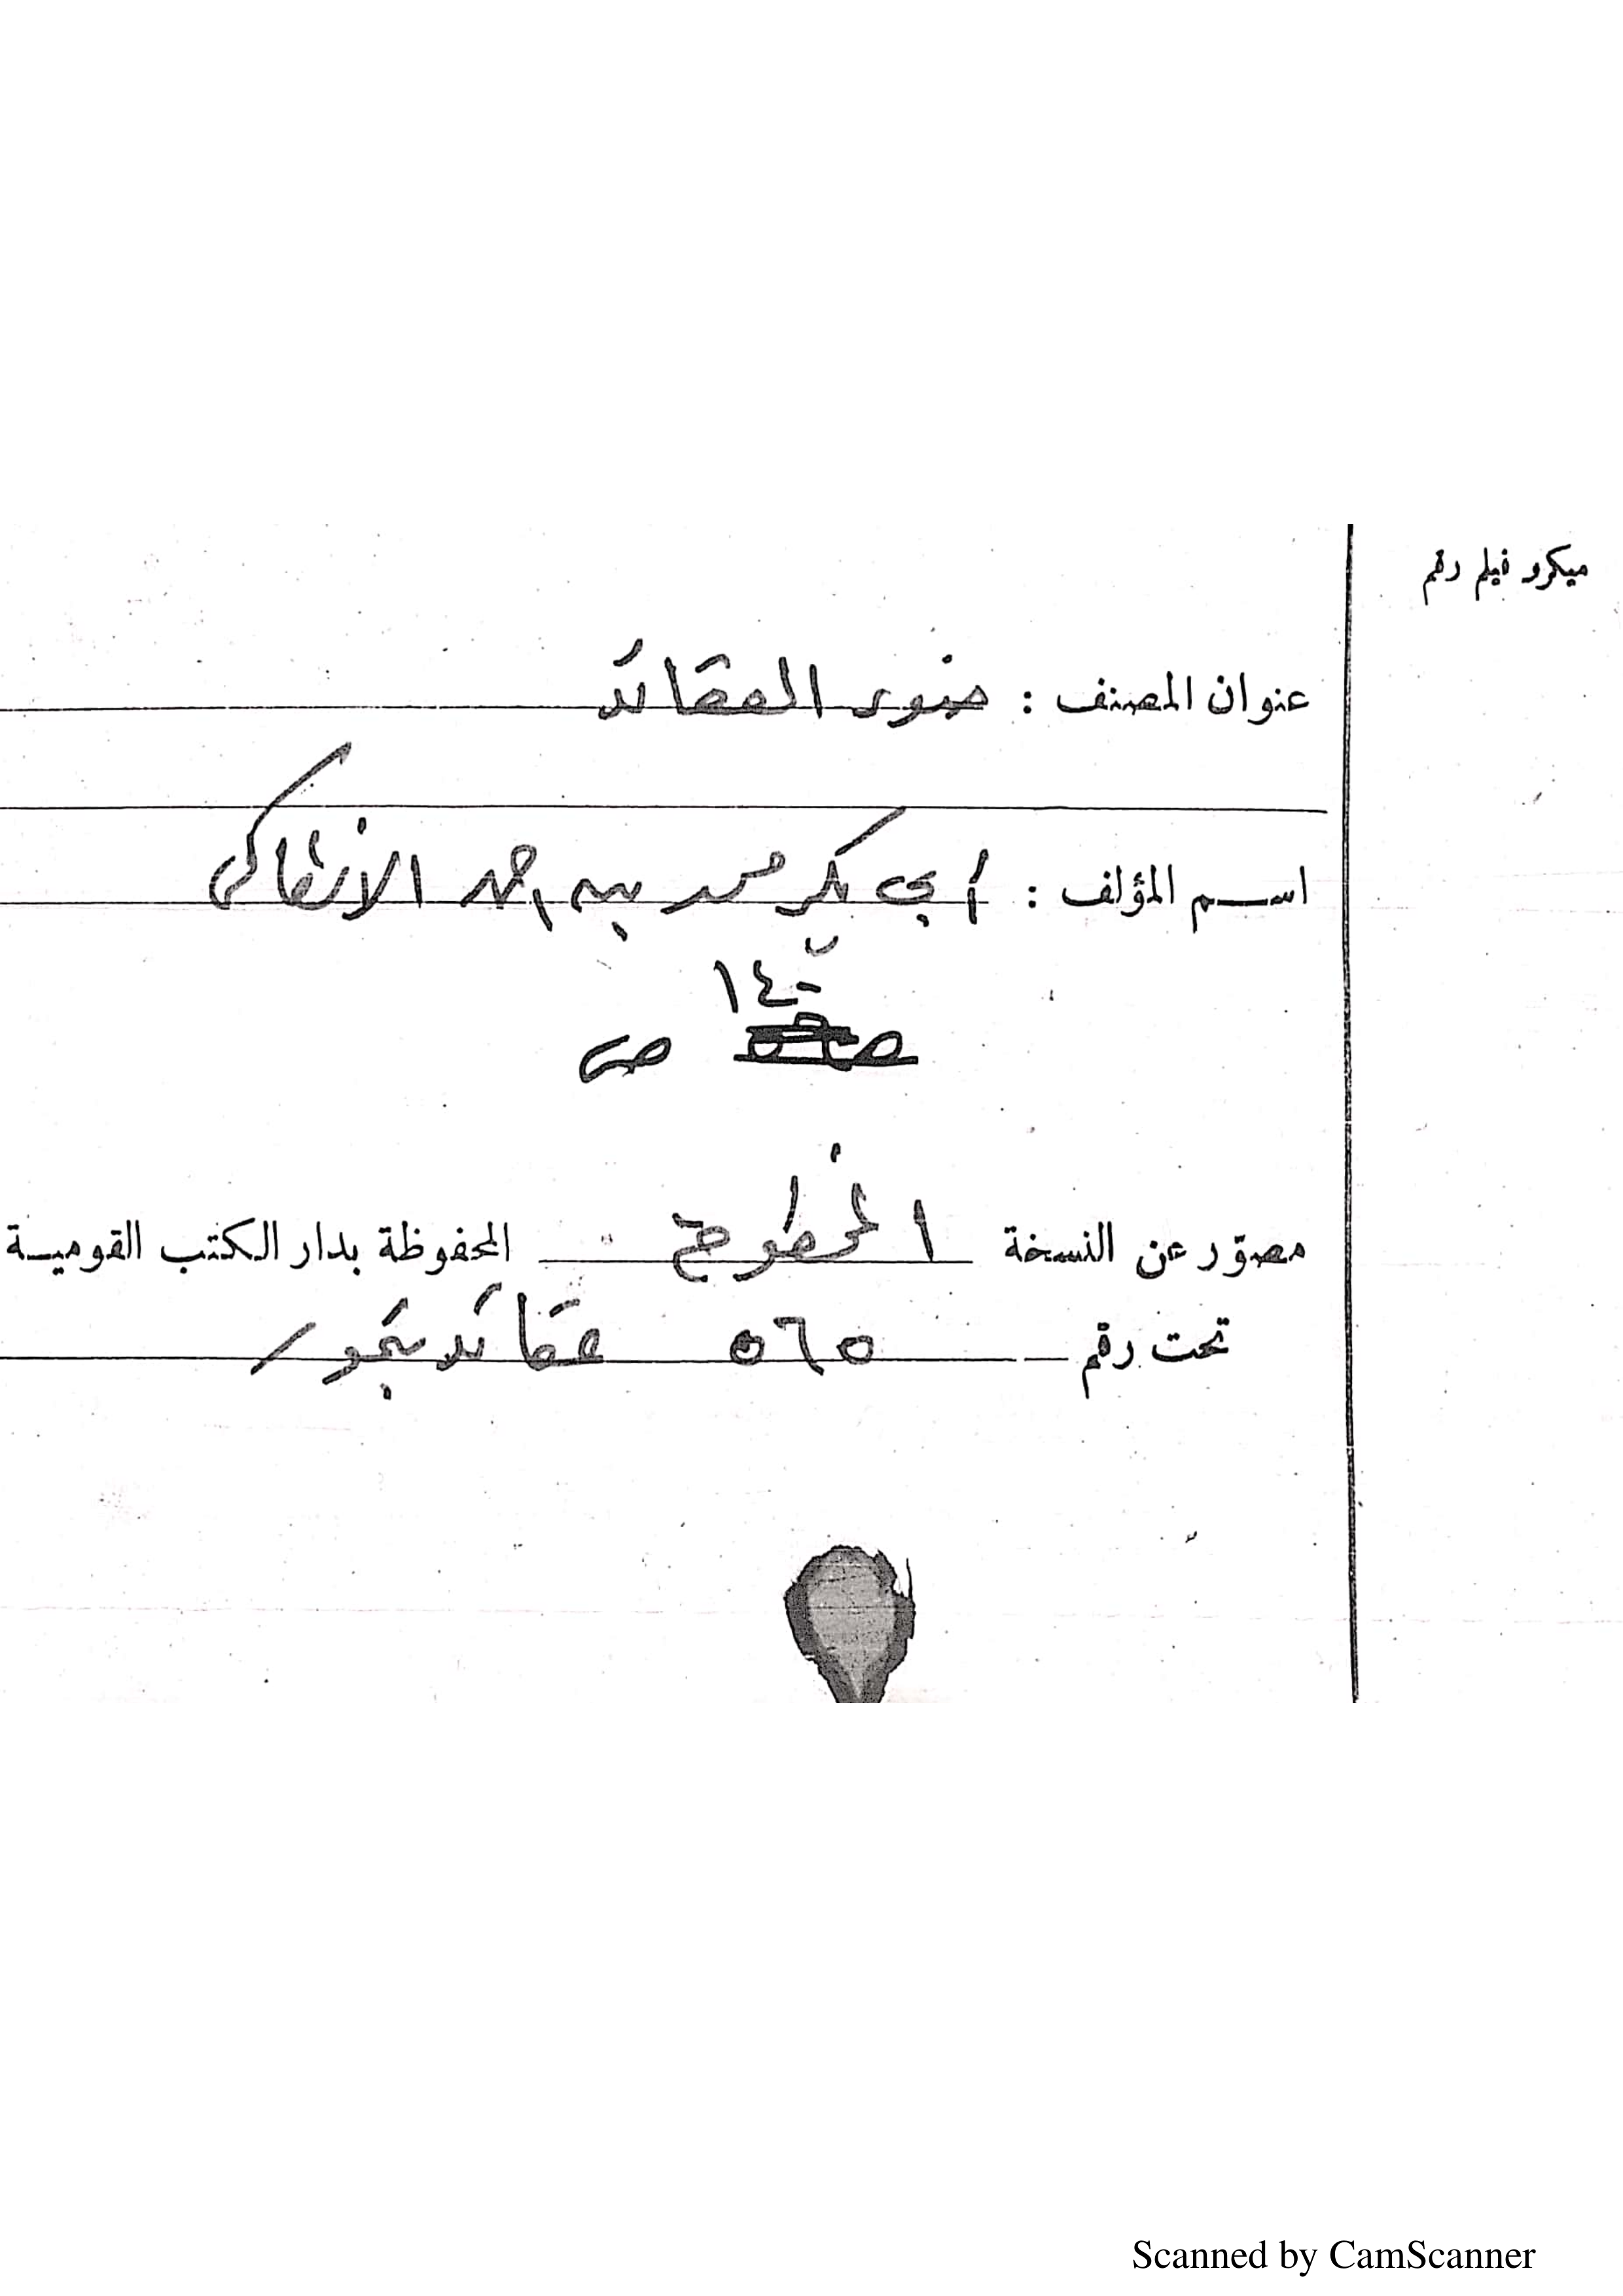 ميكرو فيلم رقم
عنوان المصنف : ضوء العقائد
اسم المؤلف : أبي بكر محمد بن احمد
١٤٠
ص
مصوّر عن النسخة المخطوطة المحفوظة بدار الكتب القومية
تحت رقم ٥٦٥ عقائد تيمور
Scanned by CamScanner